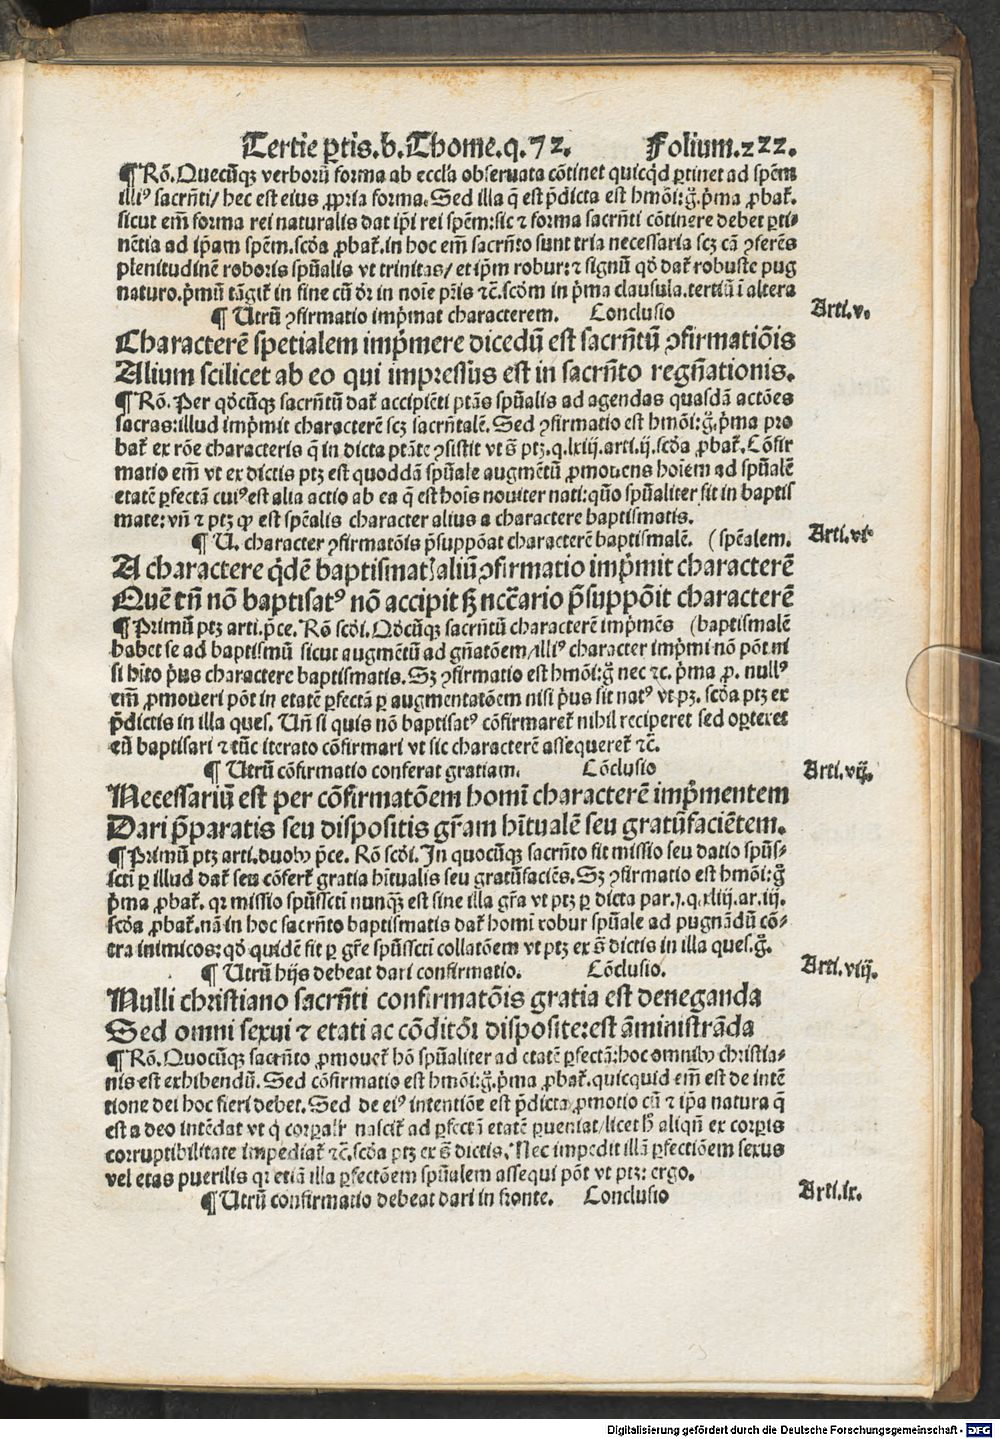 Tertie ꝑtis.b.Thome.q.72. Foliũ.222.
¶ Rõ. Quecũqꝫ verborũ forma ab eccl̃a obseruata cõtinet quicq̃d ꝑtinet ad spẽm
illiꝰ sacrñti/ hec est eius ꝓpria forma. Sed illa q̃ est p̃dicta est hm̃õi:g̃. p̃ma ꝓbat̃.
sicut em̃ forma rei naturalis dat ip̃i rei spẽm:sic ⁊ forma sacrñti cõtinere debet ꝑti-
nẽtia ad ip̃am spẽm.scd̃a ꝓbat̃.in hoc em̃ sacrñto sunt tria necessaria scꝫ cã ꝯferẽs
plenitudinẽ roboris spũalis vt trinitas/ et ip̃m robur:⁊ signũ qd̃ dat̃ robuste pug
naturo.p̃mũ tãgit̃ in fine cũ dr̃ in noĩe pr̃is ⁊c̃.scd̃m in p̃ma clausula.tertiũ ĩ altera
¶ Utrũ ꝯfirmatio imp̃mat characterem. Conclusio Arti.v.
Characterẽ spetialem imp̃mere dicedũ est sacrñtũ ꝯfirmatiõis
Alium scilicet ab eo qui impressus est in sacrñto regñationis.
¶ Rõ. Per qd̃cũqꝫ sacrñtũ dat̃ accipiẽti ptãs spũalis ad agendas quasdã actões
sacras:illud imp̃mit characterẽ scꝫ sacrñtalẽ. Sed ꝯfirmatio est hm̃õi:g̃. p̃ma pro
bat̃ ex rõe characteris q̃ in dicta ptãte ꝯsistit vt s̃ ptꝫ.q.lxiij.arti.ij.scd̃a ꝓbat̃. Cõfir
matio em̃ vt ex dictis ptꝫ est quoddã spũale augmẽtũ ꝓmouens hoĩem ad spũalẽ
etatẽ ꝑfectã cuiꝰ est alia actio ab ea q̃ est hoĩs nouiter nati:quõ spũaliter fit in baptis
mate:vñ ⁊ ptꝫ ꝙ est spẽalis character alius a charactere baptismatis.
¶ U. character ꝯfirmatõis p̃suppõat characterẽ baptismalẽ. (spẽalem. Arti.vi
A charactere q̃dẽ baptismat̃ aliũ ꝯfirmatio imp̃mit characterẽ
Quẽ tñ nõ baptisatꝰ nõ accipit sꝫ ncc̃ario p̃suppõit characterẽ
¶ Primũ ptꝫ arti.p̃ce. Rõ scd̃i. Qd̃cũqꝫ sacrñtũ characterẽ imp̃mẽs (baptismalẽ
habet se ad baptismũ sicut augmẽtũ ad gñatõem/illiꝰ character imp̃mi nõ põt ni
si hĩto p̃us charactere baptismatis. Sꝫ ꝯfirmatio est hm̃õi:g̃ nec ⁊c. p̃ma ꝓ. nullꝰ
em̃ ꝓmoueri põt in etatẽ ꝑfectã ꝑ augmentatõem nisi p̃us sit natꝰ vt pꝫ. scd̃a ptꝫ ex
p̃dictis in illa ques. Uñ si quis nõ baptisatꝰ cõfirmaret̃ nihil reciperet sed oꝑteret
eũ baptisari ⁊ tũc iterato cõfirmari vt sic characterẽ assequeret̃ ⁊c̃.
¶ Utrũ cõfirmatio conferat gratiam. Cõclusio Arti.vij.
Necessariũ est per cõfirmatõem homĩ characterẽ imp̃mentem
Dari p̃paratis seu dispositis gr̃am hĩtualẽ seu gratũfaciẽtem.
¶ Primũ ptꝫ arti.duobꝫ p̃ce. Rõ scd̃i. In quocũqꝫ sacrñto fit missio seu datio spũs-
scti ꝑ illud dat̃ seu cõfert̃ gratia hĩtualis seu gratũfaciẽs. Sꝫ ꝯfirmatio est hm̃õi:g̃
p̃ma ꝓbat̃. qꝛ missio spũsscti nunqꝫ est sine illa gr̃a vt ptꝫ ꝑ dicta par.j.q.xliij.ar.iij.
scd̃a ꝓbat̃.nã in hoc sacrñto baptismatis dat̃ homĩ robur spũale ad pugnãdũ cõ-
tra inimicos:qd̃ quidẽ fit ꝑ gr̃e spũsscti collatõem vt ptꝫ ex s̃ dictis in illa ques.g̃.
¶ Utrũ hijs debeat dari confirmatio. Cõclusio. Arti.viij.
Nulli christiano sacrñti confirmatõis gratia est deneganda
Sed omni sexui ⁊ etati ac cõditõi disposite:est ãministrãda
¶ Rõ. Quocũqꝫ sacrñto ꝓmouet̃ hõ spũaliter ad etatẽ ꝑfectã:hoc omnibꝫ christia-
nis est exhibendũ. Sed cõfirmatio est hm̃õi:g̃.p̃ma ꝓbat̃.quicquid em̃ est de intẽ
tione dei hoc fieri debet. Sed de eiꝰ intentiõe est p̃dicta ꝓmotio cũ ⁊ ip̃a natura q̃
est a deo intẽdat vt q̃ corꝑalr̃ nascit̃ ad ꝑfectã etatẽ ꝑueniat/licet h̃ aliqñ ex corꝑis
corruptibilitate impediat̃ ⁊c̃.scd̃a ptꝫ ex s̃ dictis. Nec impedit illã ꝑfectiõem sexus
vel etas puerilis qꝛ etiã illa ꝑfectõem spũalem assequi põt vt ptꝫ: ergo.
¶ Utrũ confirmatio debeat dari in fronte. Conclusio Arti.ix.
Digitalisierung gefördert durch die Deutsche Forschungsgemeinschaft - DFG